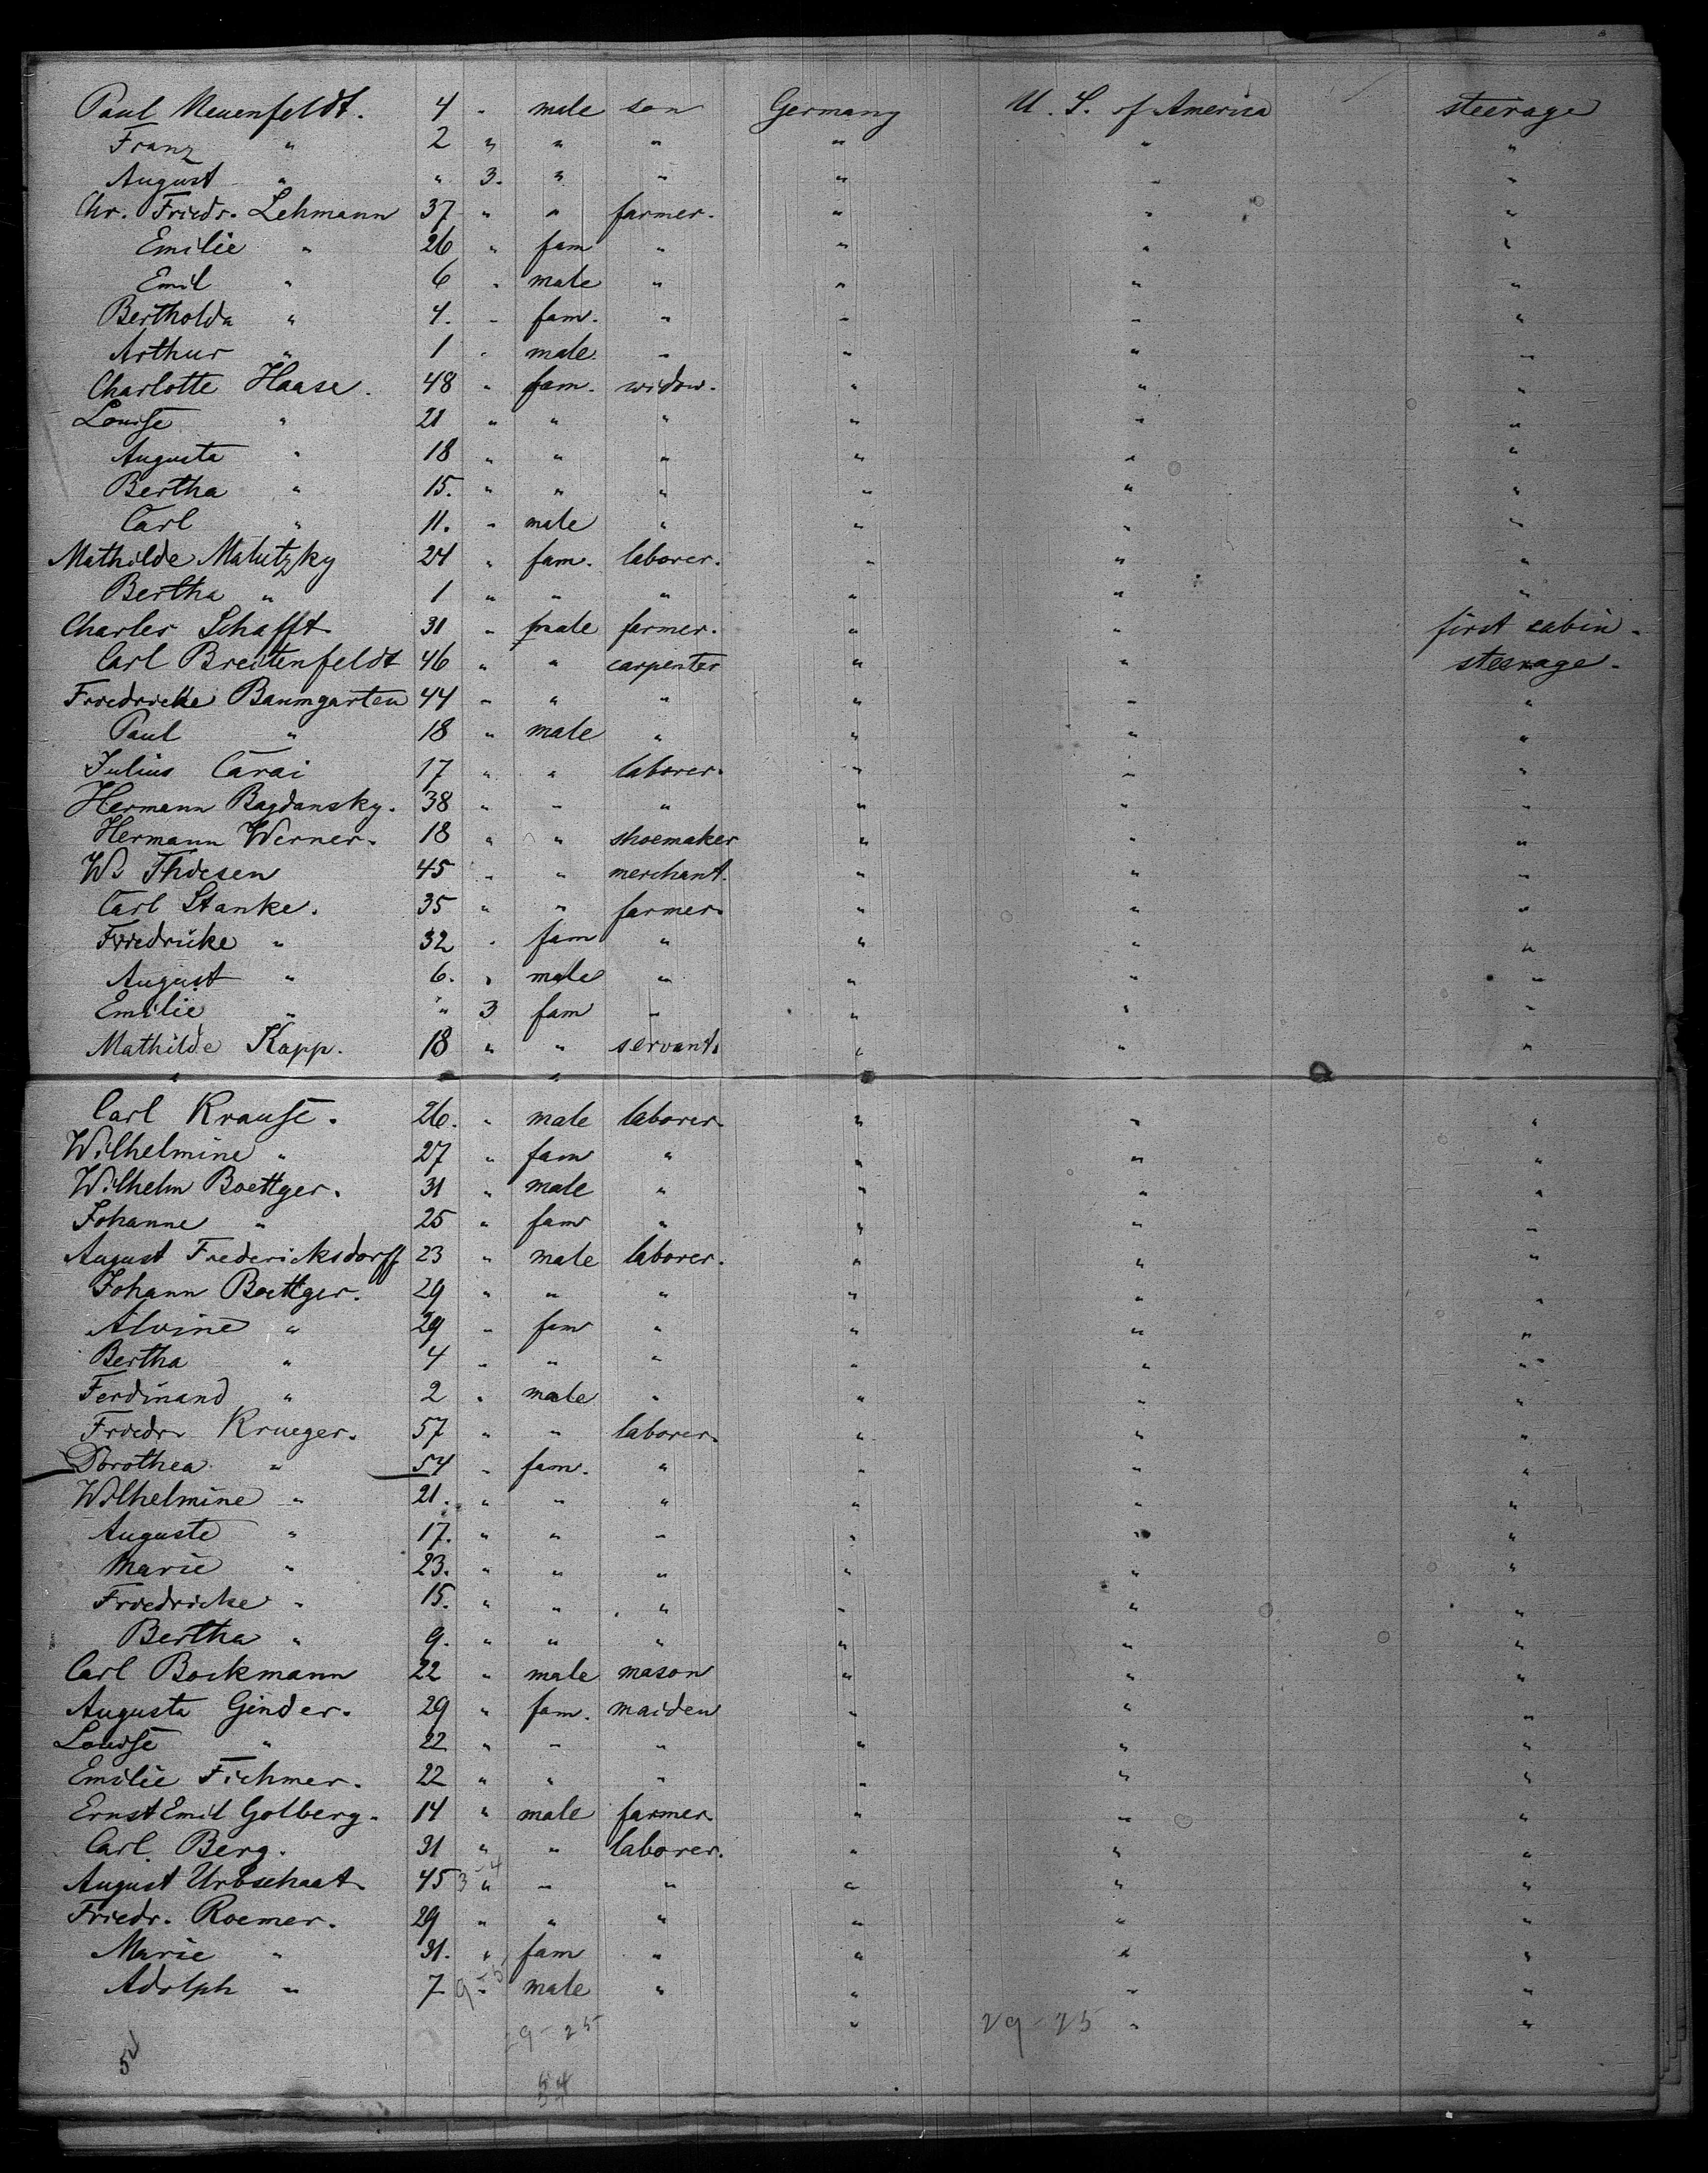 Paul Neuenfeldt. 4 " male son Germany U. S. of America steerage
Franz " 2 " " " " " "
August " " 3. " " " " "
Chr. Friedr. Lehmann 37 " " farmer. " " "
Emilie " 26 " fam " " " "
Emil " 6 " male " " " "
Bertholda " 4. " fam. " " " "
Arthur " 1 " male. " " " "
Charlotte Haase. 48 " fam. widow. " " "
Louise " 21 " " " " " "
Augusta " 18 " " " " " "
Bertha " 15. " " " " " "
Carl " 11. " male " " " "
Mathilde Malutzky 24 " fam. laborer. " " "
Bertha " 1 " " " " " "
Charles Schafft 31 " male farmer. " " first cabin.
Carl Breitenfeldt 46 " " carpenter " " steerage.
Friedricke Baumgarten 44 " " " " " "
Paul " 18 " male " " " "
Julius Carai 17 " " laborer. " " "
Hermann Bagdansky. 38 " " " " " "
Hermann Werner. 18 " " shoemaker " " "
W. Thiesen 45 " " merchant. " " "
Carl Stanke. 35 " " farmer. " " "
Friedricke " 32 " fam " " " "
August " 6. " male " " " "
Emilie " " 3 fam " " " "
Mathilde Kapp. 18 " " servant. " " "
Carl Krause. 26. " male laborer. " " "
Wilhelmine " 27 " fam " " " "
Wilhelm Boettger. 31 " male " " " "
Johanne " 25 " fam " " " "
August Fredericksdorff 23 " male laborer. " " "
Johann Boettger. 29 " " " " " "
Alvine " 29 " fam " " " "
Bertha " 4 " " " " " "
Ferdinand " 2 " male " " " "
Friedr. Krueger. 57 " " laborer. " " "
Dorothea " 54 " fam. " " " "
Wilhelmine " 21. " " " " " "
Auguste " 17. " " " " " "
Marie " 23. " " " " " "
Friedricke " 15. " " " " " "
Bertha " 9. " " " " " "
Carl Bockmann 22 " male mason " " "
Augusta Ginder. 29 " fam. maiden " " "
Louise " 22 " " " " " "
Emilie Fichmer. 22 " " " " " "
Ernst Emil Golberg. 14 " male farmer " " "
Carl Berg. 31 " " laborer. " " "
August Urbschaat. 45 " " " " " "
Friedr. Roemer. 29 " " " " " "
Marie " 31. " fam " " " "
Adolph " 7 " male " " " "
29-25 " 29-25 " "
54